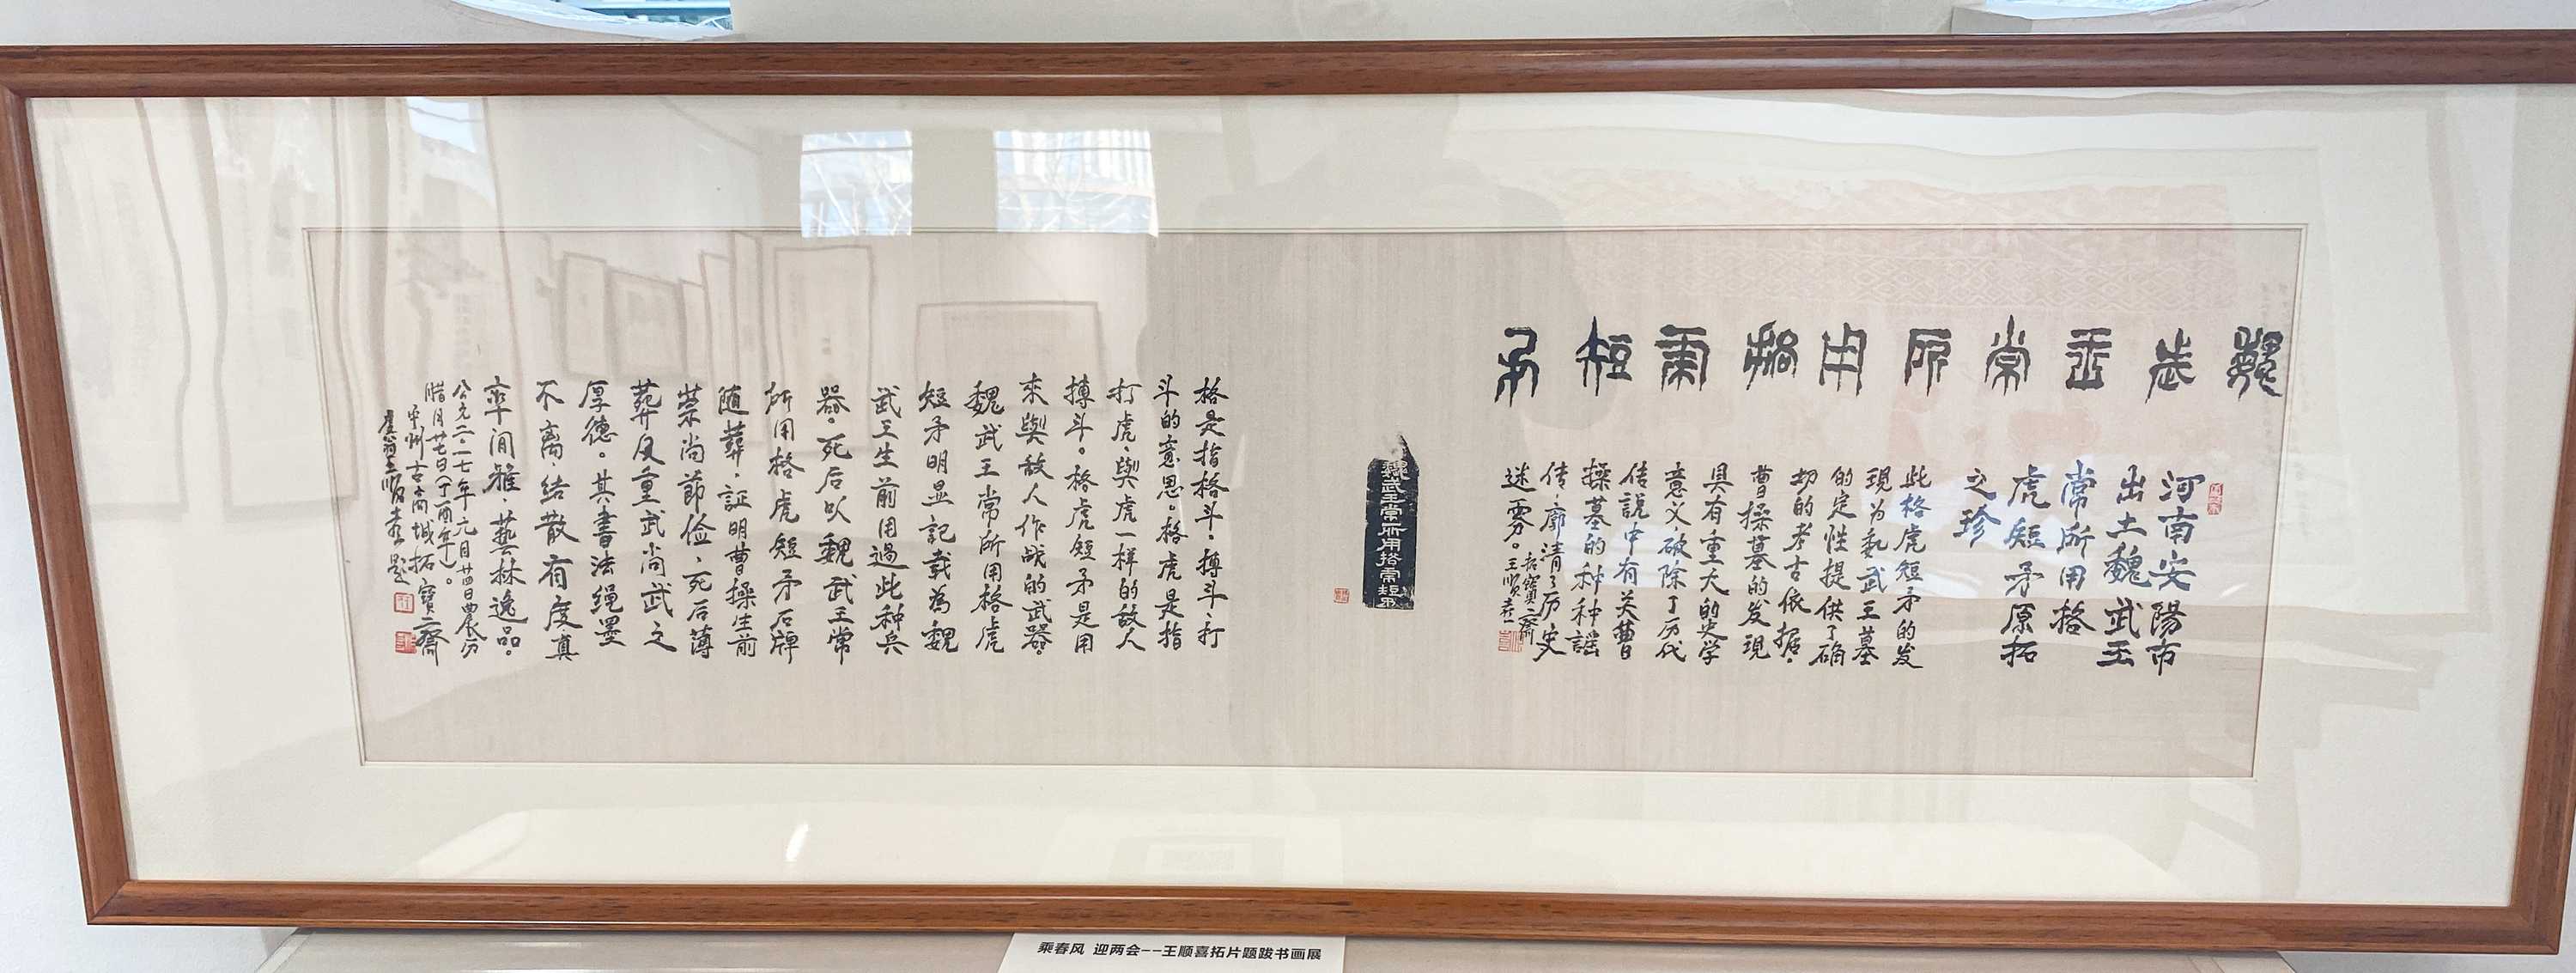 魏武王常所用格虎短矛
河南安陽市
出土魏武王
常所用格
虎短矛原拓
之珍
此格虎短矛的发
現为魏武王墓
的定性提供了确
切的考古依据.
曹操墓的发現
具有重大的史学
意义.破除了历代
传說中有关曹
操墓的种种謡
传.廓清了历史
迷雾。
長寶二齋王順喜
魏武王常所用挌虎短矛
格是指格斗.搏斗.打
斗的意思。格虎是指
打虎.與虎一样的敌人
搏斗。格虎短矛是用
來與敌人作战的武器。
魏武王常所用格虎
短矛明显記载為魏
武王生前用過此种兵
器。死后以魏武王常
所用格虎短矛石牌
随葬.証明曹操生前
崇尚節俭.死后薄
葬及重武尚武之
厚德。其書法绳墨
不离.结散有度真
率间雅.藝林逸品。
公元二〇一七年元月廿四日晨分
腊月廿七日(丁酉年)。
中州古商城拓寶二齋
虚翁王順喜題
乘春风 迎两会--王顺喜拓片题跋书画展